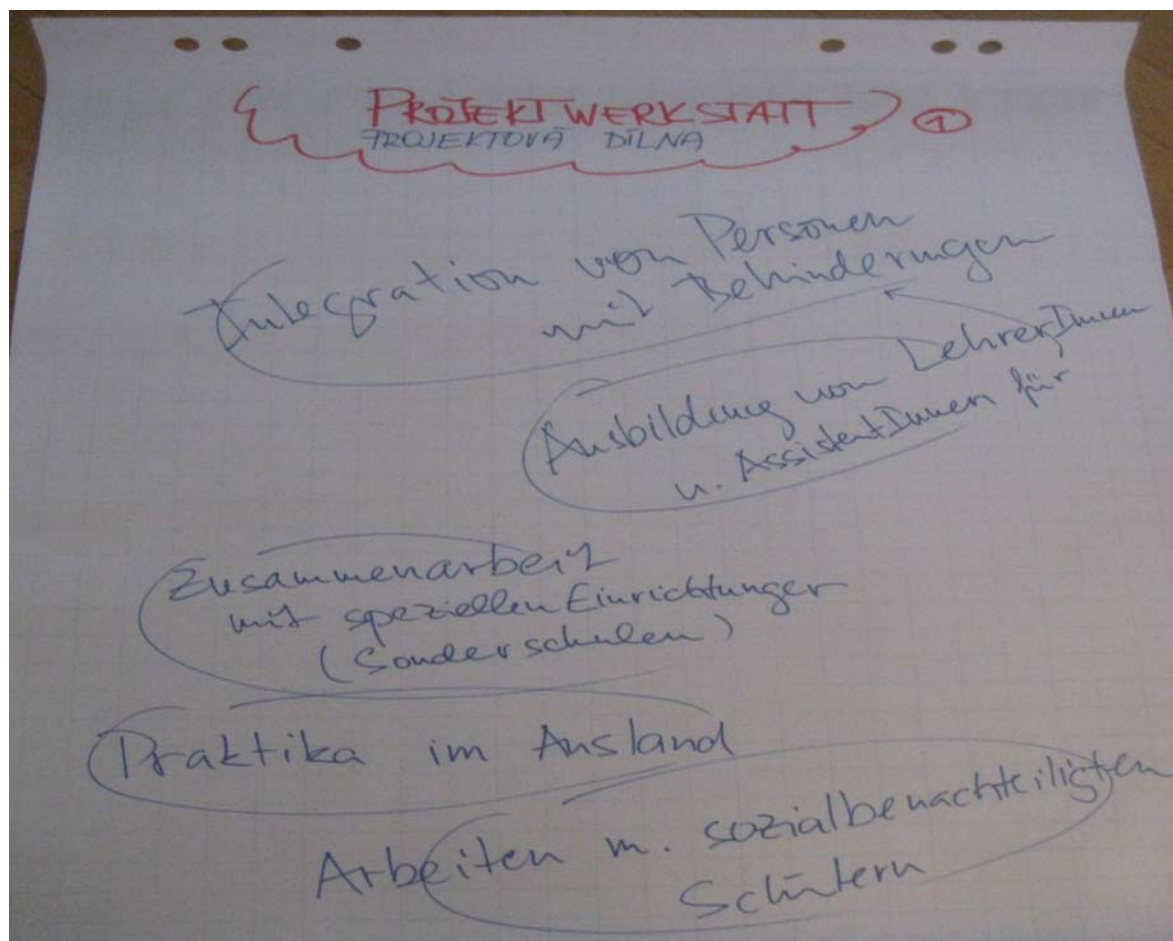 PROJEKTWERKSTATT 1
PROJEKTOVÁ DÍLNA
Integration von Personen
mit Behinderungen
Ausbildung von LehrerInnen
u. AssistentInnen für
Zusammenarbeit
mit speziellen Einrichtungen
(Sonderschulen)
Praktika im Ausland
Arbeiten m. sozialbenachteiligten
Schülern